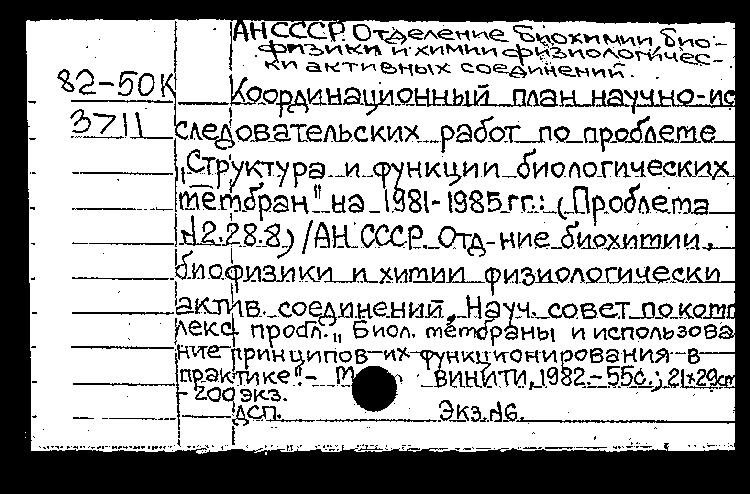 АН СССР. Отделение биохимии, био-
физики и химии физиологичес-
ки активных соединений.
82-50К Координационный план научно-ис
3711 следовательских работ по проблеме
„Структура и функции биологических
мембран" на 1981-1985 гг.: (Проблема
№2.28.8) / АН СССР. Отд-ние биохимии,
биофизики и химии физиологически
актив. соединений, Науч. совет по комп
лекс. пробл. „Биол. мембраны и использова
ние принципов их функционирования в
практике". - ВИНИТИ, 1982. - 55с.; 21×29см
- 200 экз.
ДСП. Экз. №6.